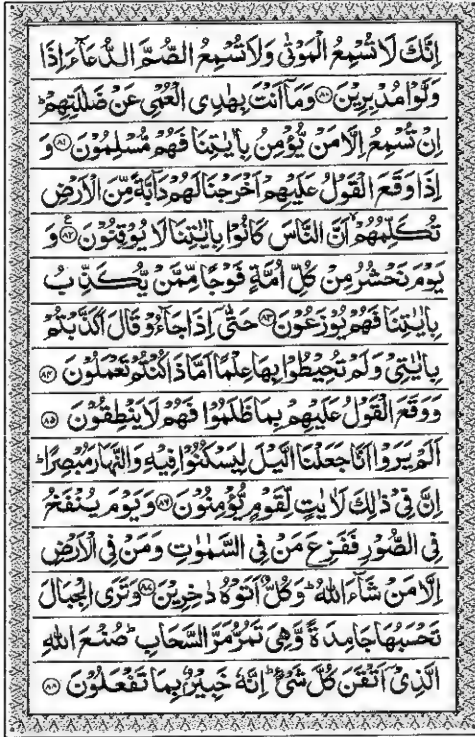 اِنَّكَ لَا تُسْمِعُ الْمَوْتٰى وَلَا تُسْمِعُ الصُّمَّ الدُّعَآءَ اِذَا
وَلَّوْا مُدْبِرِيْنَ ﴿۸۰﴾ وَمَاۤ اَنْتَ بِهٰدِى الْعُمْىِ عَنْ ضَلٰلَتِهِمْ ؕ
اِنْ تُسْمِعُ اِلَّا مَنْ يُّؤْمِنُ بِاٰيٰتِنَا فَهُمْ مُّسْلِمُوْنَ ﴿۸۱﴾ وَ
اِذَا وَقَعَ الْقَوْلُ عَلَيْهِمْ اَخْرَجْنَا لَهُمْ دَآبَّةً مِّنَ الْاَرْضِ
تُكَلِّمُهُمْ ۙ اَنَّ النَّاسَ كَانُوْا بِاٰيٰتِنَا لَا يُوْقِنُوْنَ ﴿۸۲﴾ ع وَ
يَوْمَ نَحْشُرُ مِنْ كُلِّ اُمَّةٍ فَوْجًا مِّمَّنْ يُّكَذِّبُ
بِاٰيٰتِنَا فَهُمْ يُوْزَعُوْنَ ﴿۸۳﴾ حَتّٰۤى اِذَا جَآءُوْ قَالَ اَكَذَّبْتُمْ
بِاٰيٰتِىْ وَلَمْ تُحِيْطُوْا بِهَا عِلْمًا اَمَّا ذَا كُنْتُمْ تَعْمَلُوْنَ ﴿۸۴﴾
وَوَقَعَ الْقَوْلُ عَلَيْهِمْ بِمَا ظَلَمُوْا فَهُمْ لَا يَنْطِقُوْنَ ﴿۸۵﴾
اَلَمْ يَرَوْا اَنَّا جَعَلْنَا الَّيْلَ لِيَسْكُنُوْا فِيْهِ وَالنَّهَارَ مُبْصِرًا ؕ
اِنَّ فِىْ ذٰلِكَ لَاٰيٰتٍ لِّقَوْمٍ يُّؤْمِنُوْنَ ﴿۸۶﴾ وَيَوْمَ يُنْفَخُ
فِى الصُّوْرِ فَفَزِعَ مَنْ فِى السَّمٰوٰتِ وَمَنْ فِى الْاَرْضِ
اِلَّا مَنْ شَآءَ اللّٰهُ ؕ وَكُلٌّ اَتَوْهُ دٰخِرِيْنَ ﴿۸۷﴾ وَتَرَى الْجِبَالَ
تَحْسَبُهَا جَامِدَةً وَّهِىَ تَمُرُّ مَرَّ السَّحَابِ ؕ صُنْعَ اللّٰهِ
الَّذِىْۤ اَتْقَنَ كُلَّ شَىْءٍ ؕ اِنَّهٗ خَبِيْرٌۢ بِمَا تَفْعَلُوْنَ ﴿۸۸﴾